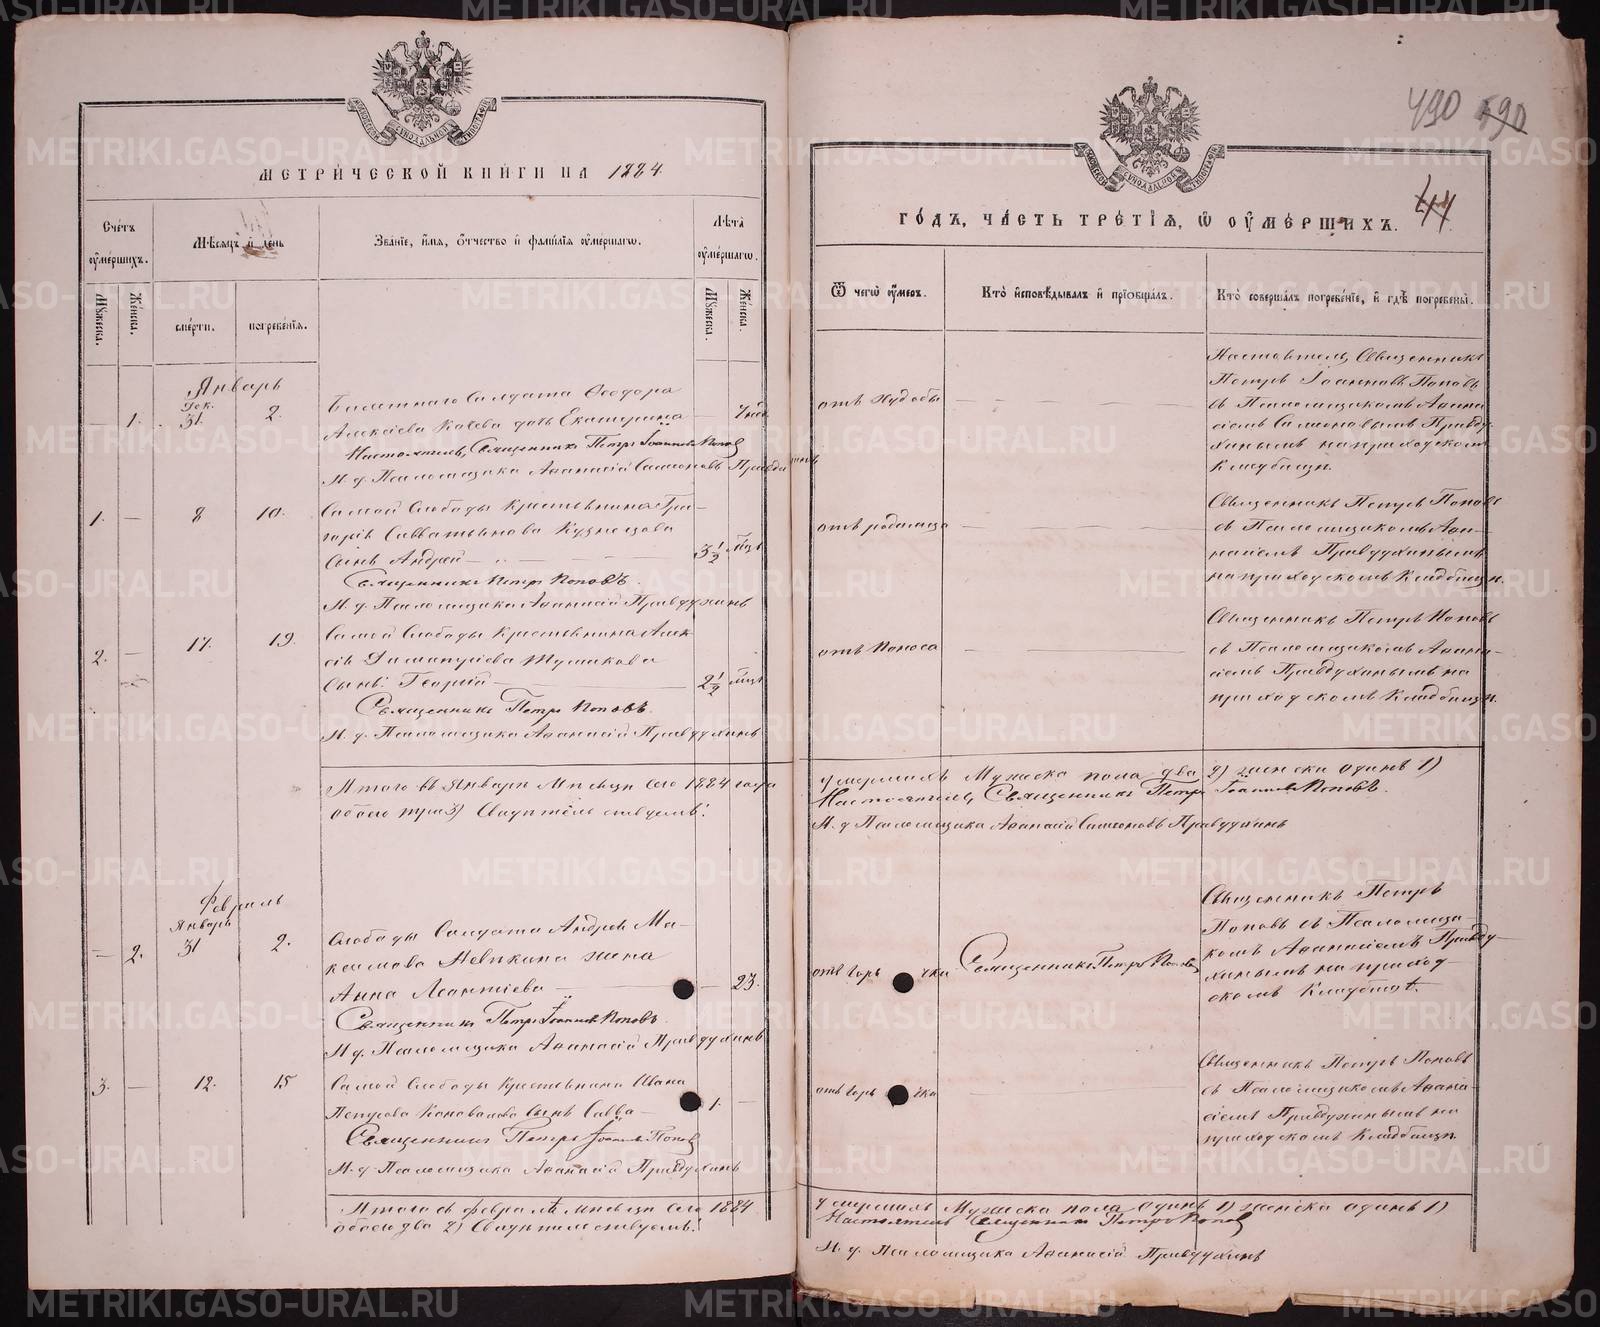 МЕТРИЧЕСКОЙ КНИГИ НА 1884
Счетъ оумершихъ.
Мѣсяцъ и день
Званіе, имя, отчество и фамилія оумершагѡ.
Лѣта оумершагѡ.
Мужеска.
Женска.
смерти.
погребенія.
Мужеска.
Женска.
Январь
Дек.
1. 31. 2.
Билетнаго Солдата Ѳеодора
Алексѣева дочь Екатерина — 7 нед
Настоятель, Священникъ Петръ Іоанновъ Поповъ
И. д. Псаломщика Аѳанасій Самсоновъ Правдухинъ
1. — 8 10.
Самой Слободы Крестьянина Гри-
горія Савватьянова Кузнецова
сынъ Андрей — 3 1/2 мѣц
Священникъ Петръ Поповъ.
И. д. Псаломщика Аѳанасій Правдухинъ
2. — 17. 19.
Самой Слободы Крестьянина Алек-
сынъ Георгій — 2 1/2 мѣц
Священникъ Петръ Поповъ.
И. д. Псаломщика Аѳанасій Правдухинъ
Итого въ Январѣ Мѣсяцѣ сего 1884 года
обоего три 3) Свидѣтельствуемъ:
Февраль
Январь
— 2. 31 2.
Слободы Солдата Андрея Ма-
ксимова жена
Анна Леонтіева — 23.
Священникъ Петръ Іоанновъ Поповъ.
И. д. Псаломщика Аѳанасій Правдухинъ
3. — 12. 15
Самой Слободы Крестьянина Ивана
Петрова Коновалова Сынъ Савва — 1. —
Священникъ Петръ Іоанновъ Поповъ
И. д. Псаломщика Аѳанасій Правдухинъ
Итого въ Февралѣ Мѣсяцѣ сего 1884
обоего два 2) Свидѣтельствуемъ:
490 490
44
ГОДЪ, ЧАСТЬ ТРЕТІЯ, Ѡ ОУМЕРШИХЪ.
Ѿ чегѡ оумеръ.
Кто исповѣдывалъ и пріобщалъ.
Кто совершалъ погребеніе, и гдѣ погребены.
отъ Худобы
Настоятель, Священникъ
Петръ Іоанновъ Поповъ
съ Псаломщикомъ Аѳана
сіемъ Самсоновымъ Правду-
хинымъ на приходскомъ
Кладбищѣ.
отъ родимца
Священникъ Петръ Поповъ
съ Псаломщикомъ Аѳа-
насіемъ Правдухинымъ
на приходскомъ Кладбищѣ.
отъ Поноса
Священникъ Петръ Поповъ
съ Псаломщикомъ Аѳана-
сіемъ Правдухинымъ на
приходскомъ Кладбищѣ.
умершихъ Мужеска пола два 2) женска одинъ 1)
Настоятель, Священникъ Петръ Іоанновъ Поповъ.
И. д. Псаломщика Аѳанасій Самсоновъ Правдухинъ
отъ Горячки
Священникъ Петръ Поповъ
Священникъ Петръ
Поповъ съ Псаломщи-
комъ Аѳанасіемъ Правду-
хинымъ на приход-
скомъ Кладбищѣ.
отъ Горячки
Священникъ Петръ Поповъ
съ Псаломщикомъ Аѳана-
сіемъ Правдухинымъ на
приходскомъ Кладбищѣ.
умершихъ Мужеска пола одинъ 1) женска одинъ 1)
Настоятель Священникъ Петръ Поповъ
И. д. Псаломщика Аѳанасій Правдухинъ
METRIKI.GASO-URAL.RU